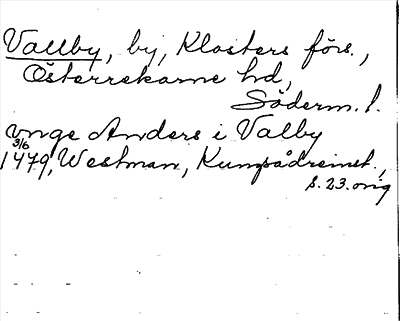 Vallby, by, Klosters förs.,
Österrekarne hd,
Söderm. l.
vnge Anders i Valby
3/6
1479, Westman, Kungsådreinst.,
s. 23. orig